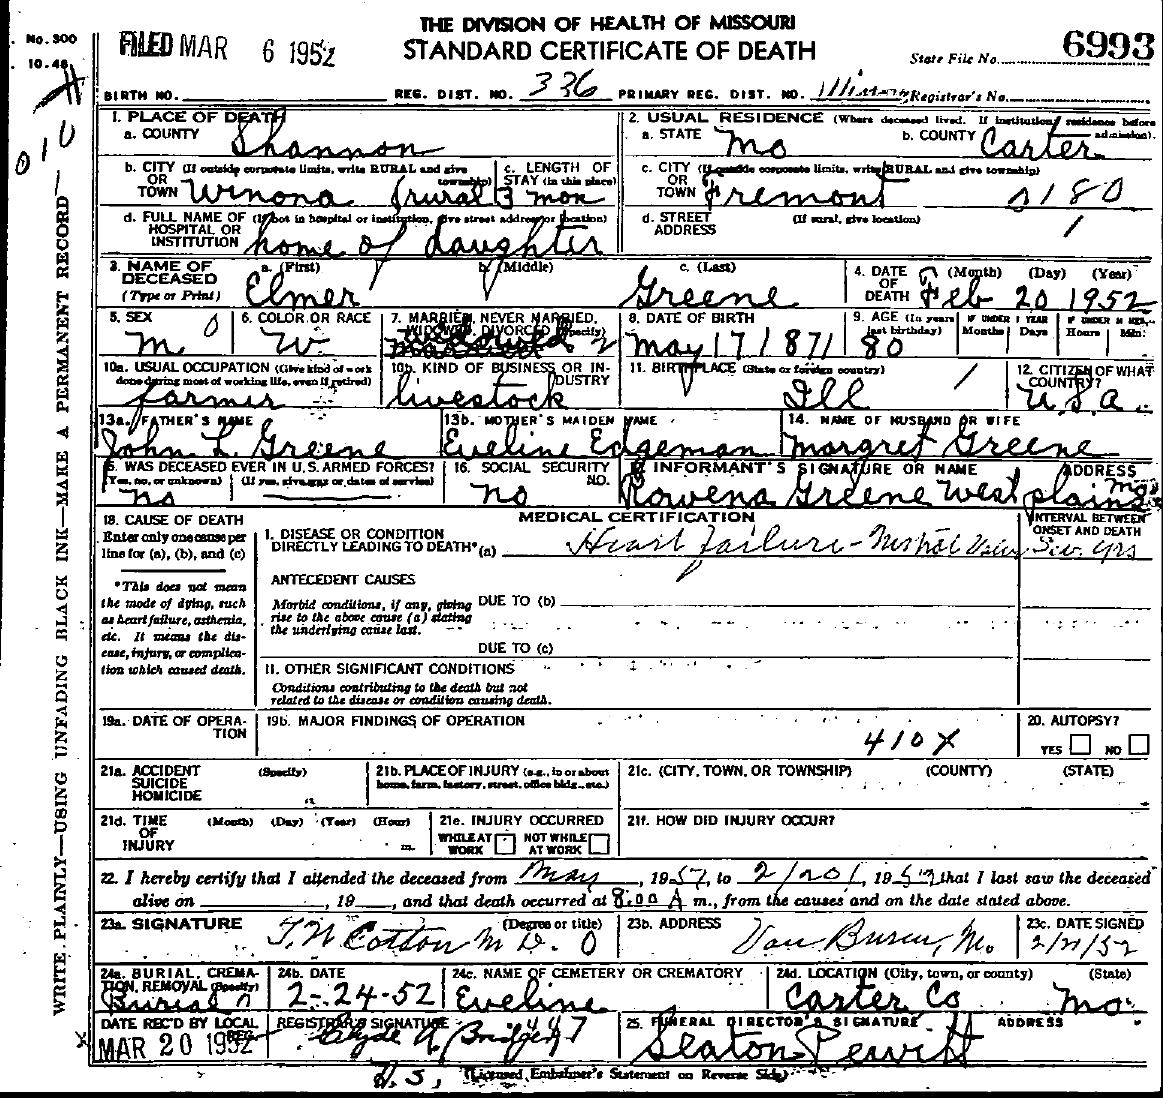 THE DIVISION OF HEALTH OF MISSOURI
STANDARD CERTIFICATE OF DEATH
No. 300
10-48
FILED MAR 6 1952
State File No. 6993
BIRTH NO. REG. DIST. NO. 336 PRIMARY REG. DIST. NO. Registrar's No.
010
1. PLACE OF DEATH
a. COUNTY Shannon
2. USUAL RESIDENCE (Where deceased lived. If institution: residence before admission).
a. STATE Mo b. COUNTY Carter
b. CITY (If outside corporate limits, write RURAL and give township) OR TOWN Winona (rural
c. LENGTH OF STAY (in this place) 3 mon
c. CITY (If outside corporate limits, write RURAL and give township) OR TOWN Fremont 0180
d. FULL NAME OF (If not in hospital or institution, give street address or location) HOSPITAL OR INSTITUTION home of daughter
d. STREET ADDRESS (If rural, give location) 1
3. NAME OF DECEASED (Type or Print)
a. (First) Elmer
b. (Middle)
c. (Last) Greene
4. DATE OF DEATH (Month) (Day) (Year) Feb 20 1952
5. SEX M 0
6. COLOR OR RACE W
7. MARRIED, NEVER MARRIED, WIDOWED, DIVORCED (Specify) widowed 2
8. DATE OF BIRTH May 17 1871
9. AGE (In years last birthday) 80
IF UNDER 1 YEAR Months Days
IF UNDER 24 HRS. Hours Min.
10a. USUAL OCCUPATION (Give kind of work done during most of working life, even if retired) farmer
10b. KIND OF BUSINESS OR INDUSTRY livestock
11. BIRTHPLACE (State or foreign country) Ill 1
12. CITIZEN OF WHAT COUNTRY? U.S.A.
13a. FATHER'S NAME John L. Greene
13b. MOTHER'S MAIDEN NAME Eveline Edgeman
14. NAME OF HUSBAND OR WIFE Margret Greene
15. WAS DECEASED EVER IN U.S. ARMED FORCES? (Yes, no, or unknown) (If yes, give war or dates of service) no
16. SOCIAL SECURITY NO. no
17. INFORMANT'S SIGNATURE OR NAME ADDRESS Rowena Greene West plains Mo
18. CAUSE OF DEATH
Enter only one cause per line for (a), (b), and (c)
*This does not mean the mode of dying, such as heart failure, asthenia, etc. It means the disease, injury, or complication which caused death.
MEDICAL CERTIFICATION
INTERVAL BETWEEN ONSET AND DEATH
I. DISEASE OR CONDITION DIRECTLY LEADING TO DEATH* (a) Heart failure - Sev. yrs
ANTECEDENT CAUSES
Morbid conditions, if any, giving rise to the above cause (a) stating the underlying cause last.
DUE TO (b)
DUE TO (c)
II. OTHER SIGNIFICANT CONDITIONS
Conditions contributing to the death but not related to the disease or condition causing death.
19a. DATE OF OPERATION
19b. MAJOR FINDINGS OF OPERATION
410X
20. AUTOPSY?
YES NO
21a. ACCIDENT SUICIDE HOMICIDE (Specify)
21b. PLACE OF INJURY (e.g., in or about home, farm, factory, street, office bldg., etc.)
21c. (CITY, TOWN, OR TOWNSHIP) (COUNTY) (STATE)
21d. TIME OF INJURY (Month) (Day) (Year) (Hour) m.
21e. INJURY OCCURRED
WHILE AT WORK NOT WHILE AT WORK
21f. HOW DID INJURY OCCUR?
22. I hereby certify that I attended the deceased from May, 1951, to 2/20/, 1952, that I last saw the deceased
alive on , 19 , and that death occurred at 8:00 A m., from the causes and on the date stated above.
23a. SIGNATURE (Degree or title) T.W. Cotton M.D. 0
23b. ADDRESS Van Buren, Mo.
23c. DATE SIGNED 2/21/52
24a. BURIAL, CREMATION, REMOVAL (Specify) Burial
24b. DATE 2-24-52
24c. NAME OF CEMETERY OR CREMATORY Eveline
24d. LOCATION (City, town, or county) (State) Carter Co Mo.
DATE REC'D BY LOCAL REG. MAR 20 1952
REGISTRAR'S SIGNATURE 447
25. FUNERAL DIRECTOR'S SIGNATURE ADDRESS Seaton Pewitt
D.S.
(Licensed Embalmer's Statement on Reverse Side)
WRITE PLAINLY—USING UNFADING BLACK INK—MAKE A PERMANENT RECORD